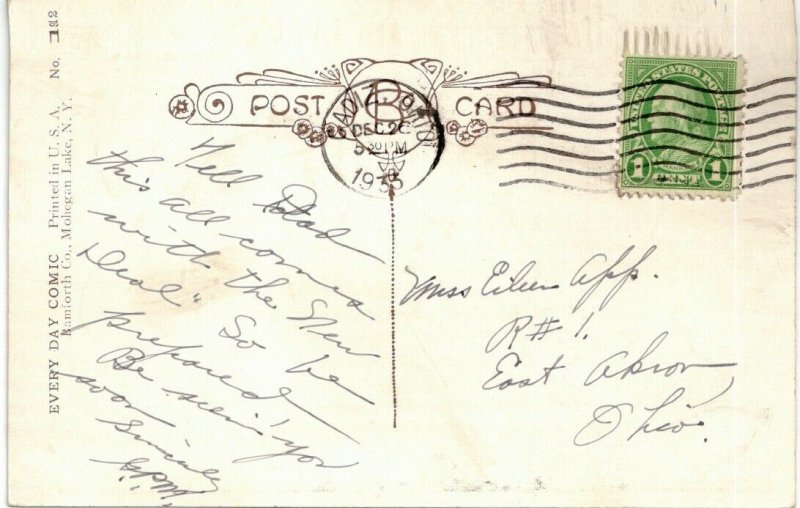 EVERY DAY COMIC Printed in U. S. A. No. 112
Bamforth Co., Mohegan Lake, N. Y.
POST CARD
OHIO
DEC 26
5 30 PM
1935
UNITED STATES POSTAGE
1 CENT 1
Tell Dad
this all comes
with the New
Deal" So be
prepared
Be seein' you
soon
Sincerely
Miss Eileen App.
R#1.
East Akron
Ohio.